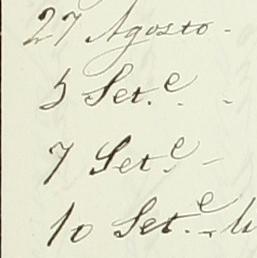 27 Agosto -
5 Set.e -
7 Set.e -
10 Set.e -